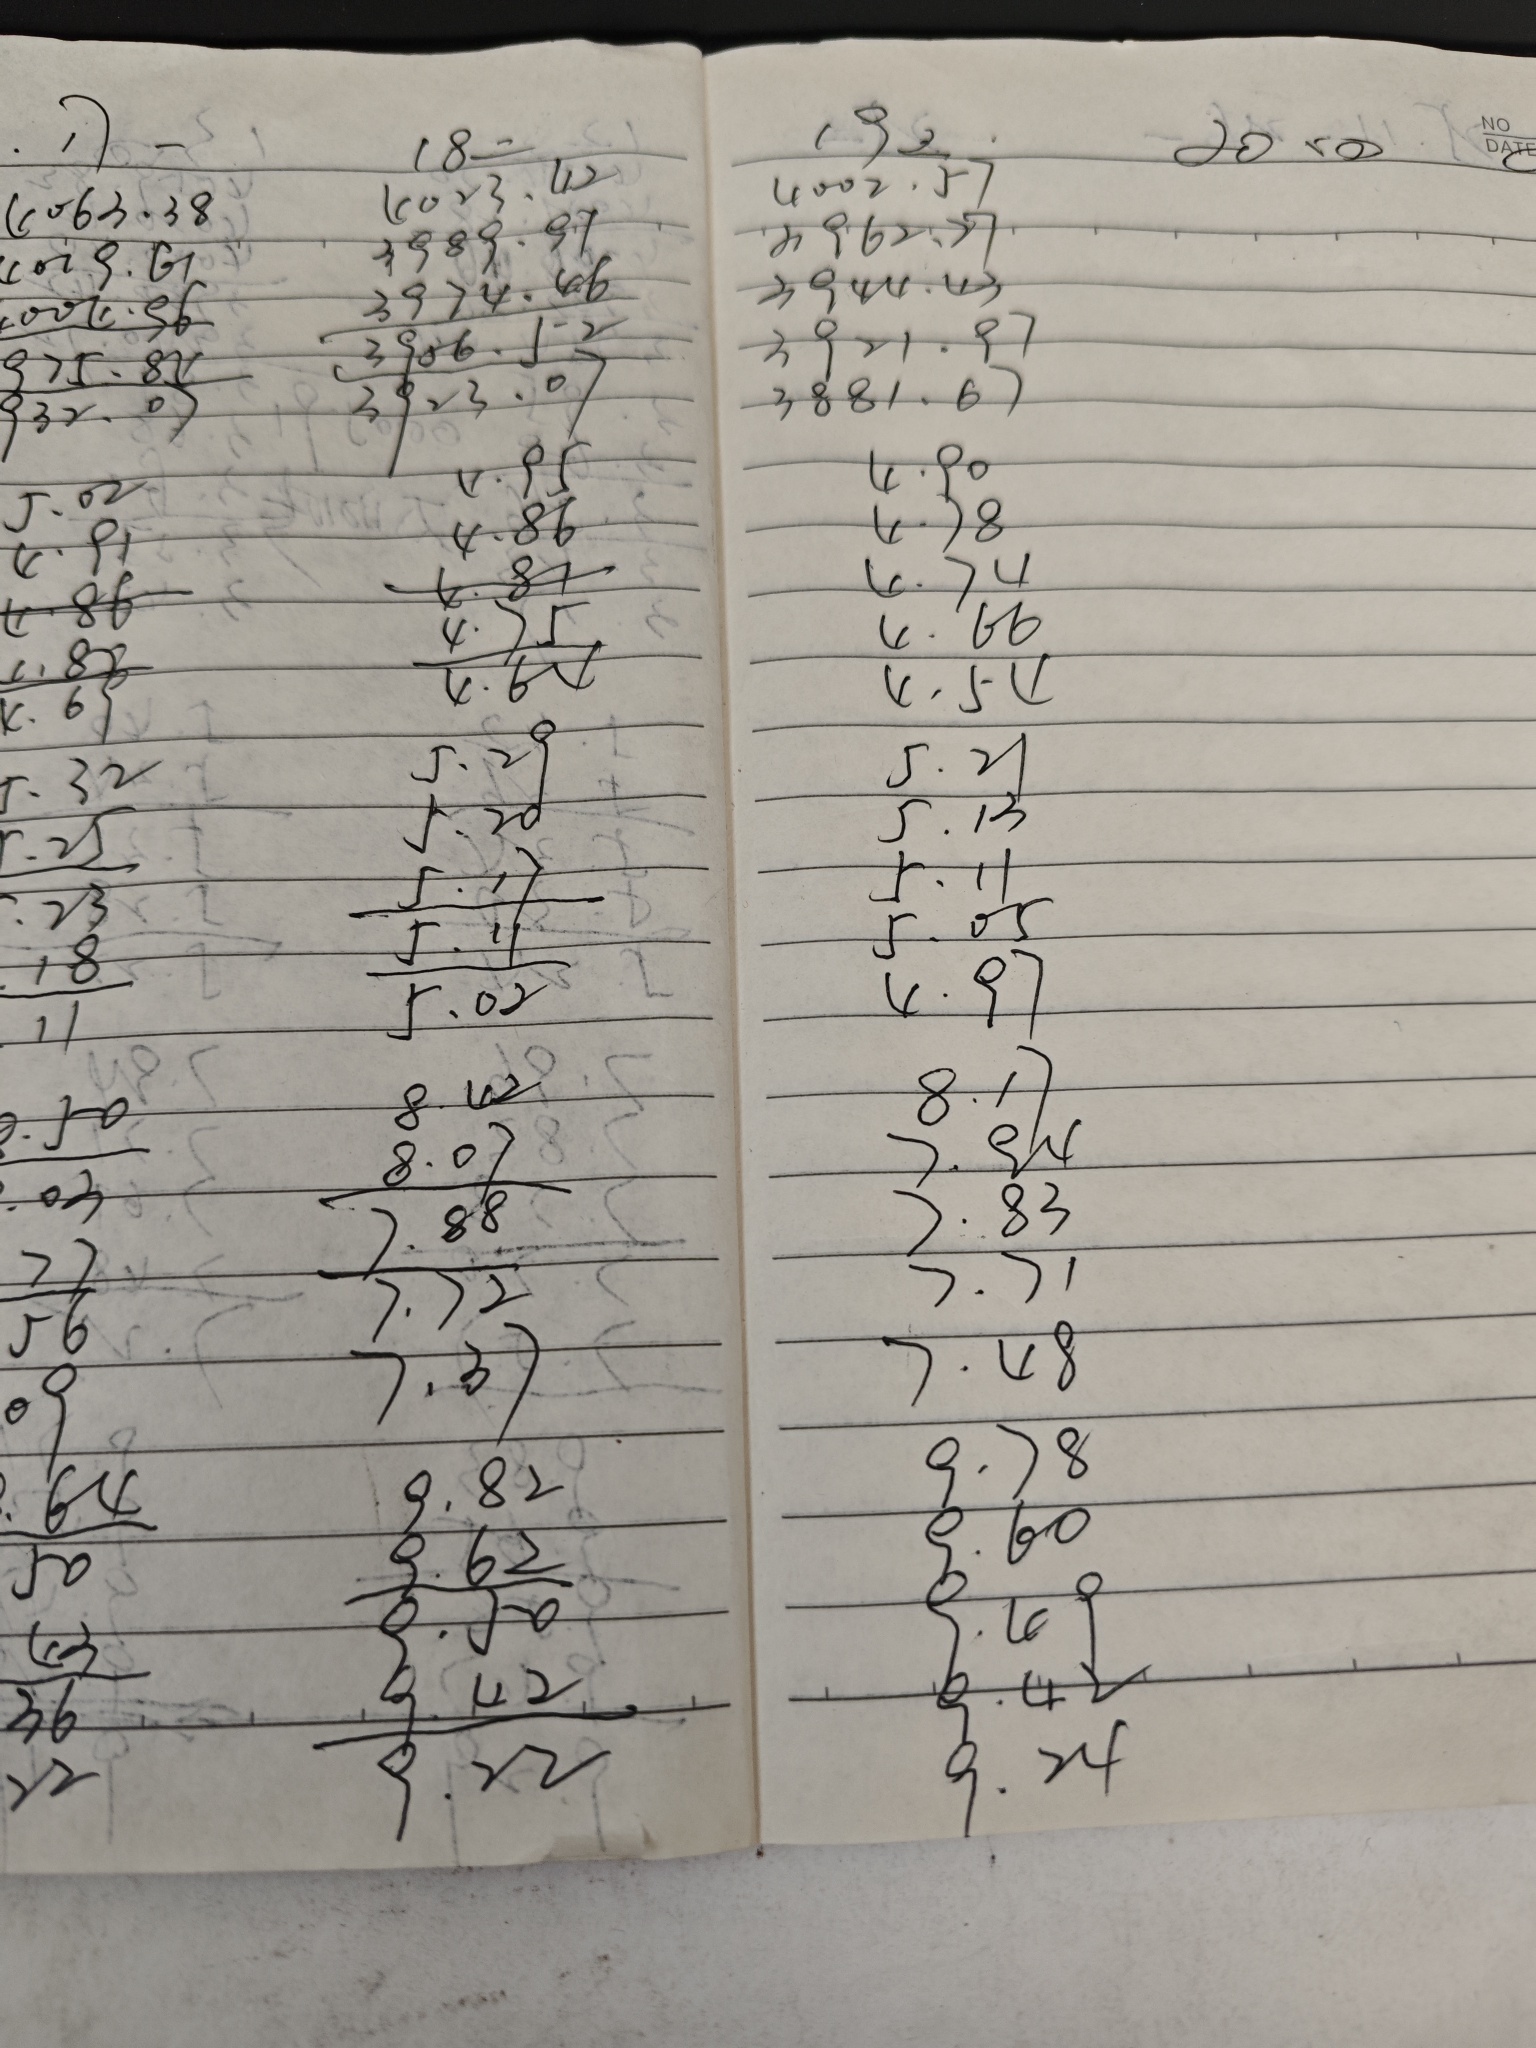 17 一
4063.38
4019.61
4004.56
975.84
932.07
5.02
4.91
4.86
4.82
4.69
5.32
5.25
.23
.18
11
.50
.03
77
56
09
.64
50
43
36
22
18 二
4023.42
3989.97
3974.46
3906.52
3923.07
4.95
4.86
4.81
4.75
4.64
5.29
5.20
5.17
5.11
5.02
8.42
8.07
7.88
7.72
7.37
9.82
9.62
9.50
9.42
9.22
19 三
4002.57
3962.27
3944.43
3921.97
3881.67
4.90
4.78
4.74
4.66
4.54
5.21
5.13
5.11
5.05
4.97
8.17
7.94
7.83
7.71
7.48
9.78
9.60
9.49
9.42
9.24
20 四
NO
DATE